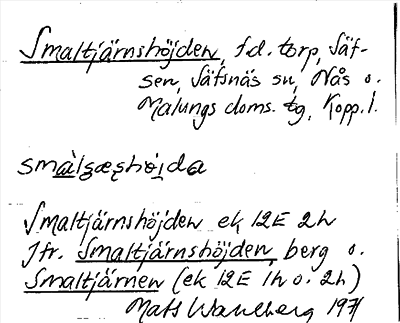 Smaltjärnshöjden, f.d. torp, Säf-
sen, Säfsnäs sn, Nås o.
Malungs doms. tg, Kopp. l.
Smaltjärnshöjden ek 12E 2h
Jfr. Smaltjärnshöjden, berg o.
Smaltjärnen (ek 12E 1h o. 2h)
Mats Wahlberg 1971